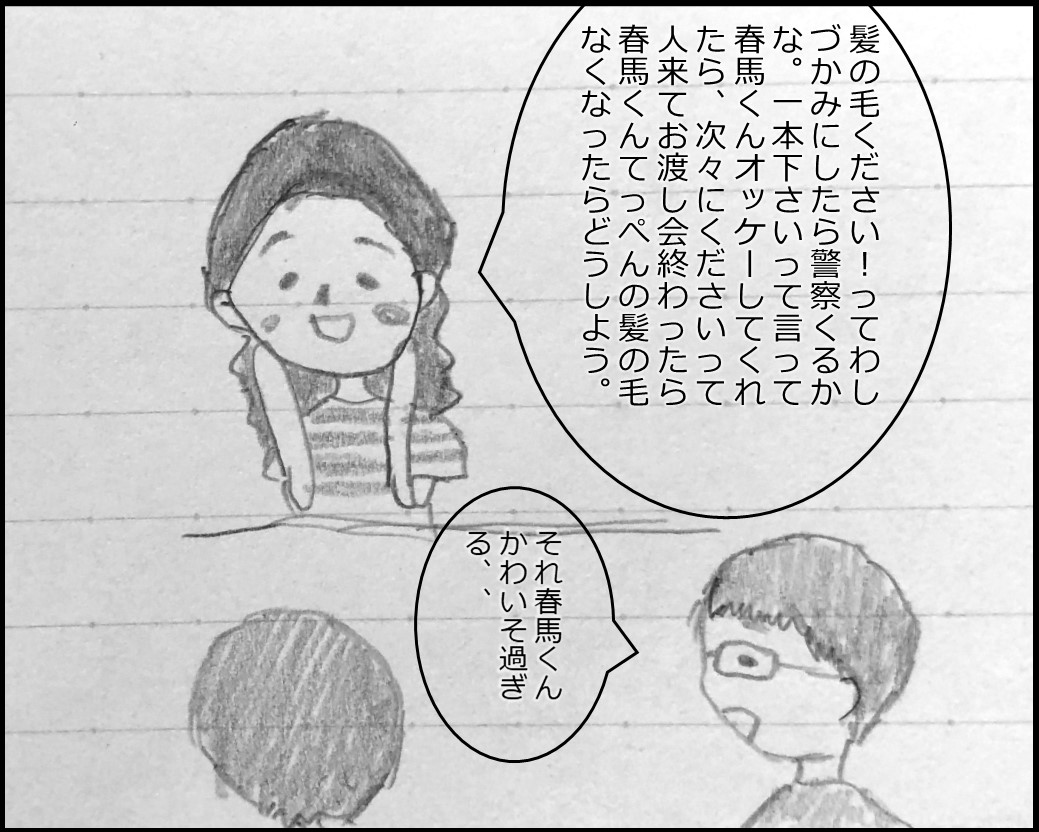 髪の毛ください！ってわし
づかみにしたら警察くるか
な。一本下さいって言って
春馬くんオッケーしてくれ
たら、次々にくださいって
人来てお渡し会終わったら
春馬くんてっぺんの髪の毛
なくなったらどうしよう。
それ春馬くん
かわいそ過ぎ
る、、